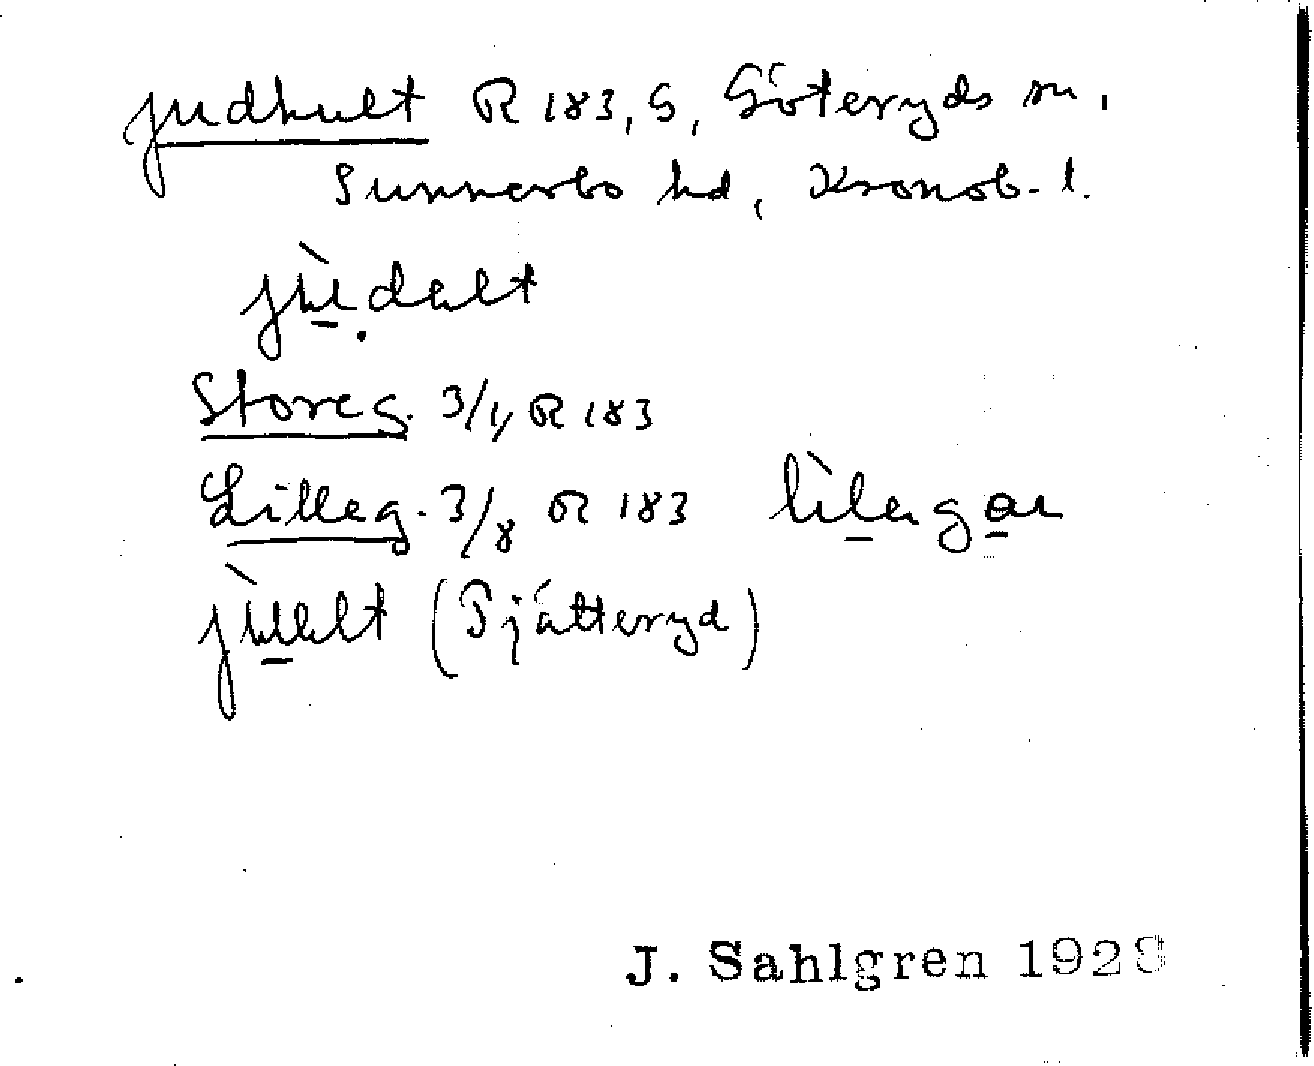 Judhult R 183, S, Göteryds sn.
Sunnerbo hd, Kronob. l.
jùdalt
Storeg. 3/4 R 183
Lilleg. 3/8 R 183 lìlagar
jùlalt (Pjätteryd)
J. Sahlgren 1928